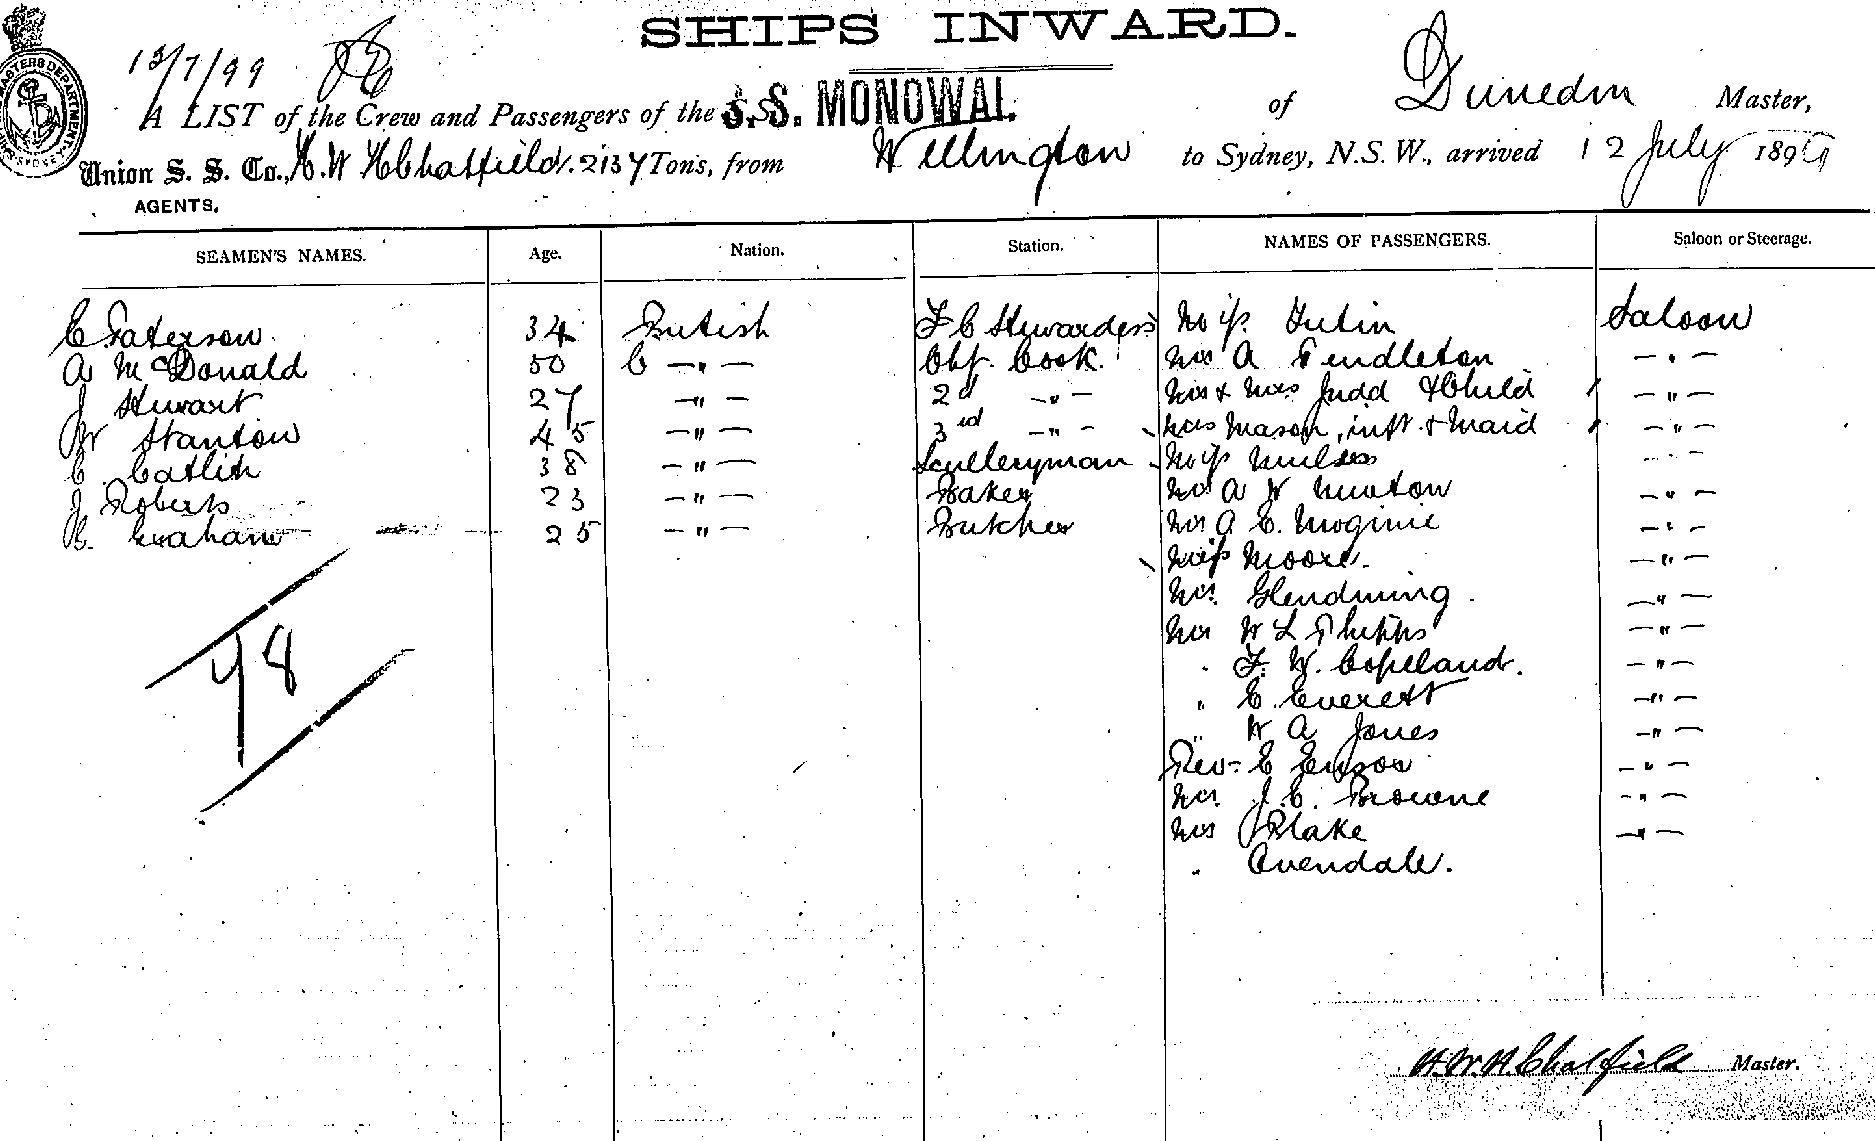 SHIPS INWARD.
13/7/99
A LIST of the Crew and Passengers of the S.S. MONOWAI. of Dunedin Master,
Union S. S. Co., H. W H Chatfield. 2137 Tons, from Wellington to Sydney, N.S.W., arrived 12 July 1899
AGENTS.
SEAMEN'S NAMES. Age. Nation. Station. NAMES OF PASSENGERS. Saloon or Steerage.
C Paterson 34 British F C Stewardess Miss Saloon
A McDonald 50 C —"— Chf. Cook. Mr A Pendleton —"—
J Stewart 27 —"— 2d —"— Mr & Mrs Judd & Child —"—
W Stanton 45 —"— 3rd —"— Mrs Mason, inft. & Maid —"—
C. Catlin 38 —"— Sculleryman Miss —"—
J Roberts 23 —"— Baker Mr A W Newton —"—
Graham 25 —"— Butcher Mr A E. Moginie —"—
Miss Moore. —"—
Mr. Glendining —"—
Mr W L Phipps —"—
" F. W. Copeland. —"—
" E. Everett —"—
" W A Jones —"—
Rev. C —"—
Mr. J. C. Browne —"—
Mr J Blake —"—
" Avendale.
78
H. W. H. Chatfield Master.